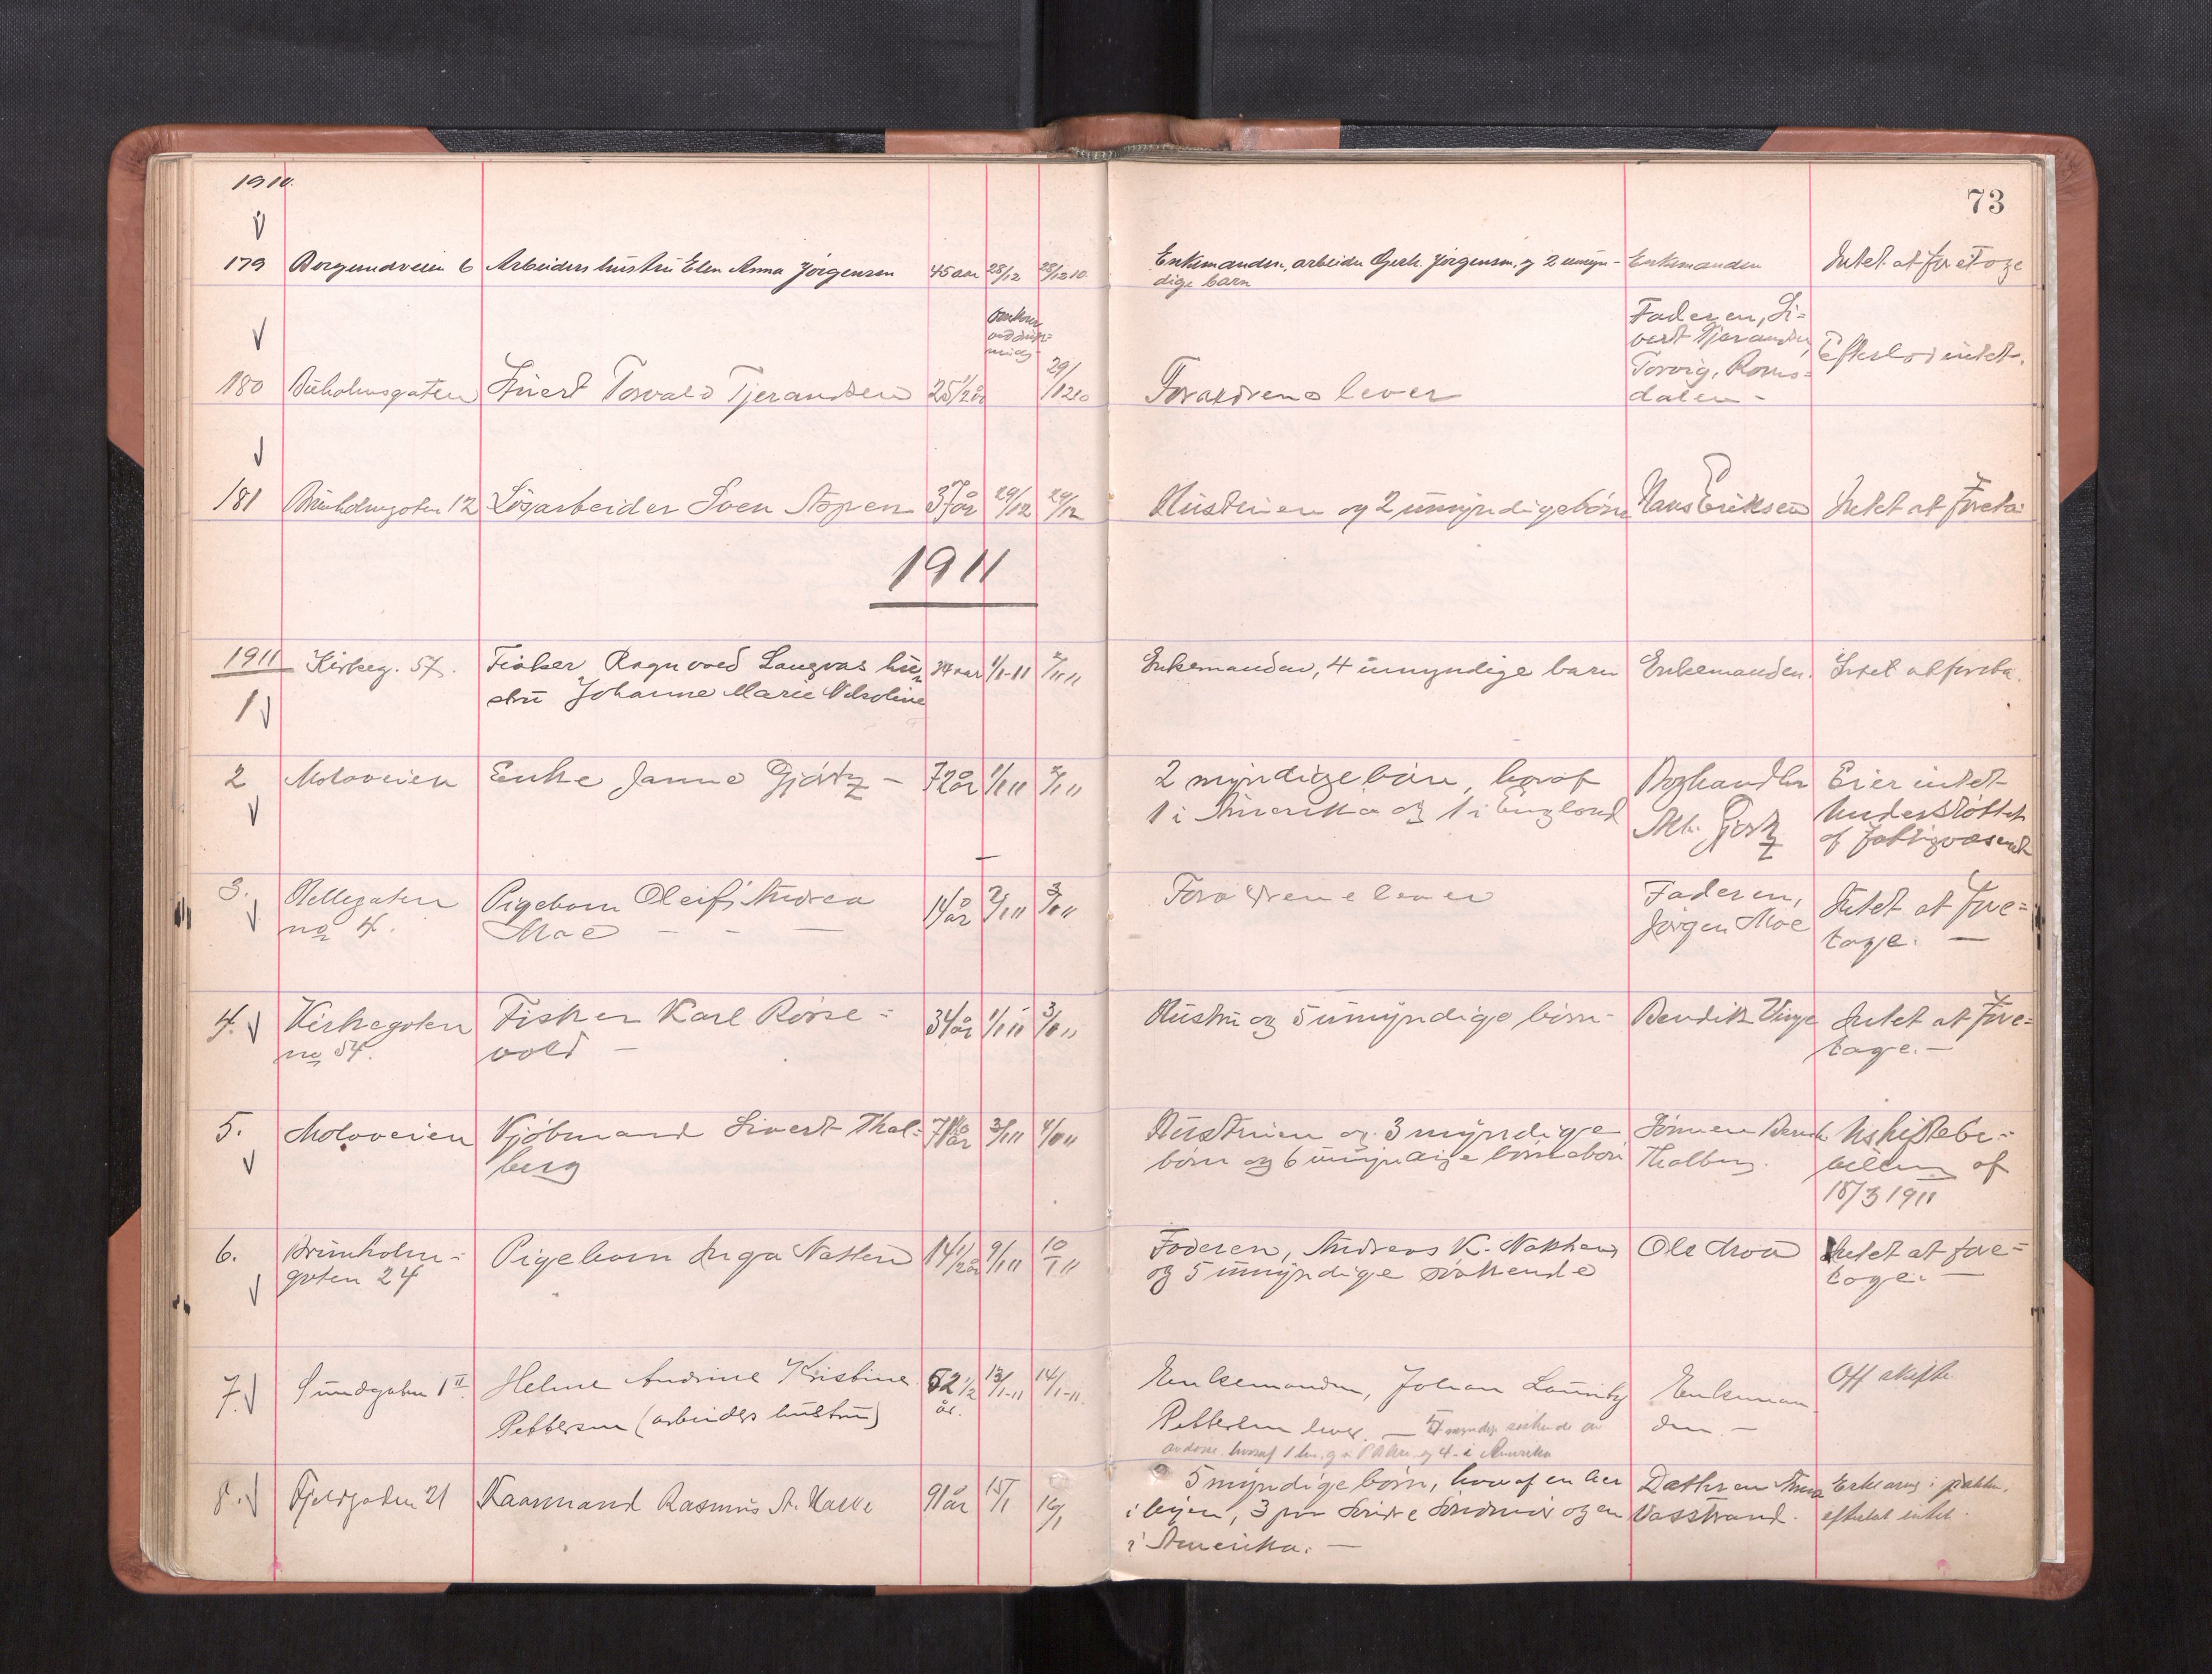 1910.
73
179 Borgundveien 6 Arbeiders hustru Elen Anna Jørgensen 45 aar 28/12 28/12 10 Enkemanden, arbeider Gerh. Jørgensen, og 2 umyn-
dige barn
Enkemanden
Intet at foretage
180 Buholmsgaten Sivert Torvald Tjerandsen 25 1/2 år
29/12 10
Forældrene lever
Faderen, Si-
vert Tjerandsen,
Torvig, Roms-
dalen -
Efterlod intet.
181 Buholmgaten 12 Løsarbeider Sven Aspen 37 år 29/12 29/12 Hustruen og 2 umyndige børn Hans Eriksen Intet at foreta
1911
1911 Kirkeg. 57. Fisker Ragnvald Langvas hu-
1 stru Johanne Marie
1/1-11 2/1 11
Enkemanden, 4 umyndige barn Enkemanden. Intet at foreta.
2 Moloveien Enke Janna Gjørtz - 72 år 1/1 11 2/1 11
2 myndige børn, hvoraf
1 i Amerika og 1 i England
Gjørtz
Eier intet
Understøttet
af fattigvæsenet
3. Hellegaten Pigebarn Andrea
no 4. Moe - - -
2/1 11 3/1 11
Forældrene lever
Faderen,
Jørgen Moe
Intet at fore-
tage. -
4. Kirkegaten Fisker Karl Rørse-
no 54. vold -
34 år 1/1 11 3/1 11
Hustru og 5 umyndige børn - Bendik Vinje Intet at fore-
tage. -
5. Moloveien Kjøbmand Sivert Thal-
berg
3/1 11 4/1 11
Hustruen og 3 myndige
børn og 6 umyndige børnebørn
Sønnen
Thalberg.
Uskiftebe-
villing af
18/3 1911
6. Brunholm-
gaten 24
Pigebarn Inga Nakken 14 1/2 år 9/1 11 10/1 11
Faderen, Andreas K. Nakken,
og 5 umyndige søskende
Ole Moa
Intet at fore-
tage. -
7. Sundgaten 1 II Helene Andrine Kristine 62 1/2 13/1-11 14/1-11.
Pettersen (arbeiders hustru) år.
Enkemanden, Johan
Pettersen lever. - myndige søskende av
avdøde hvoraf 1 og 4 i Amerika
Enkeman-
den. -
Off. skifte
8. Fjeldgaten 21 Kaarmand Rasmus A. 91 år 15/1 16/1
5 myndige børn, hvoraf en her
i byen, 3 paa Søndre Søndmør og en
i Amerika. -
Datteren
Vasstrand.